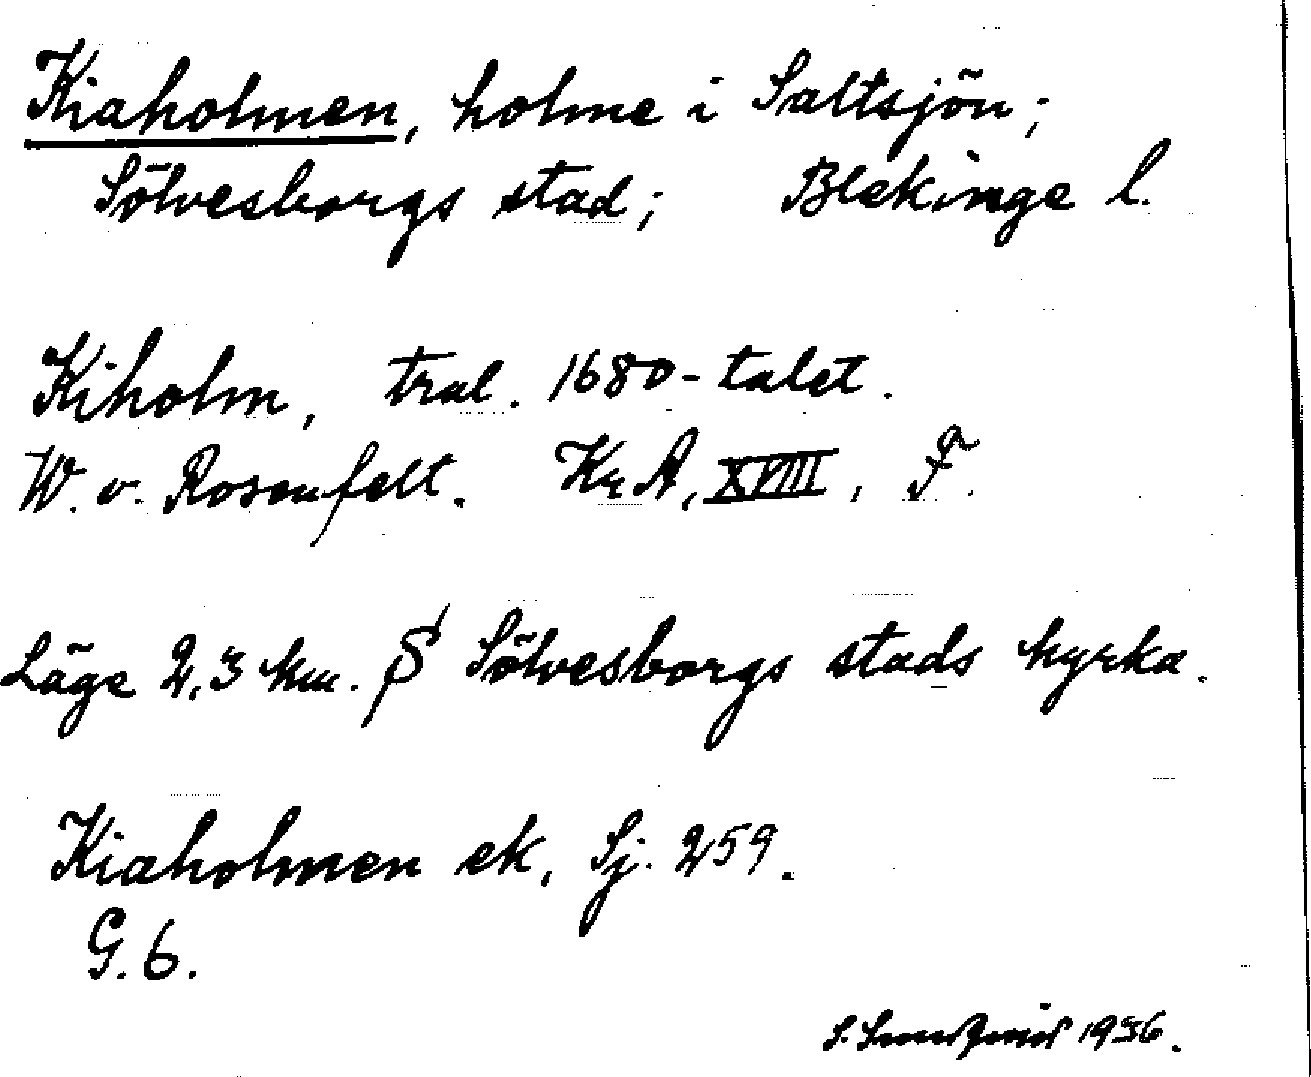 Kiaholmen, holme i Saltsjön;
Sölvesborgs stad; Blekinge l.
Kiholm, tral. 1680-talet.
W. v. Rosenfelt. Kr A, XVIII, F.
Läge 2,3 km. S Sölvesborgs stads kyrka.
Kiaholmen ek, Sj. 259.
G. 6.
S. 1956.